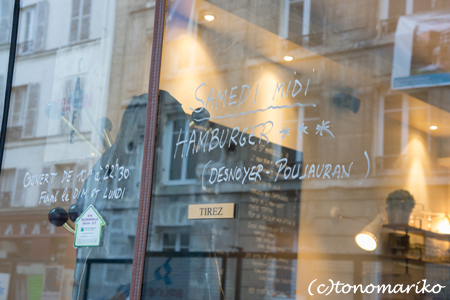 SAMEDI MIDI
HAMBURGER ***
(DESNOYER-POUJAURAN)
OUVERT DE
À 22H30
Fermé le DIM ET LUNDI
TIREZ
(c)tonomariko